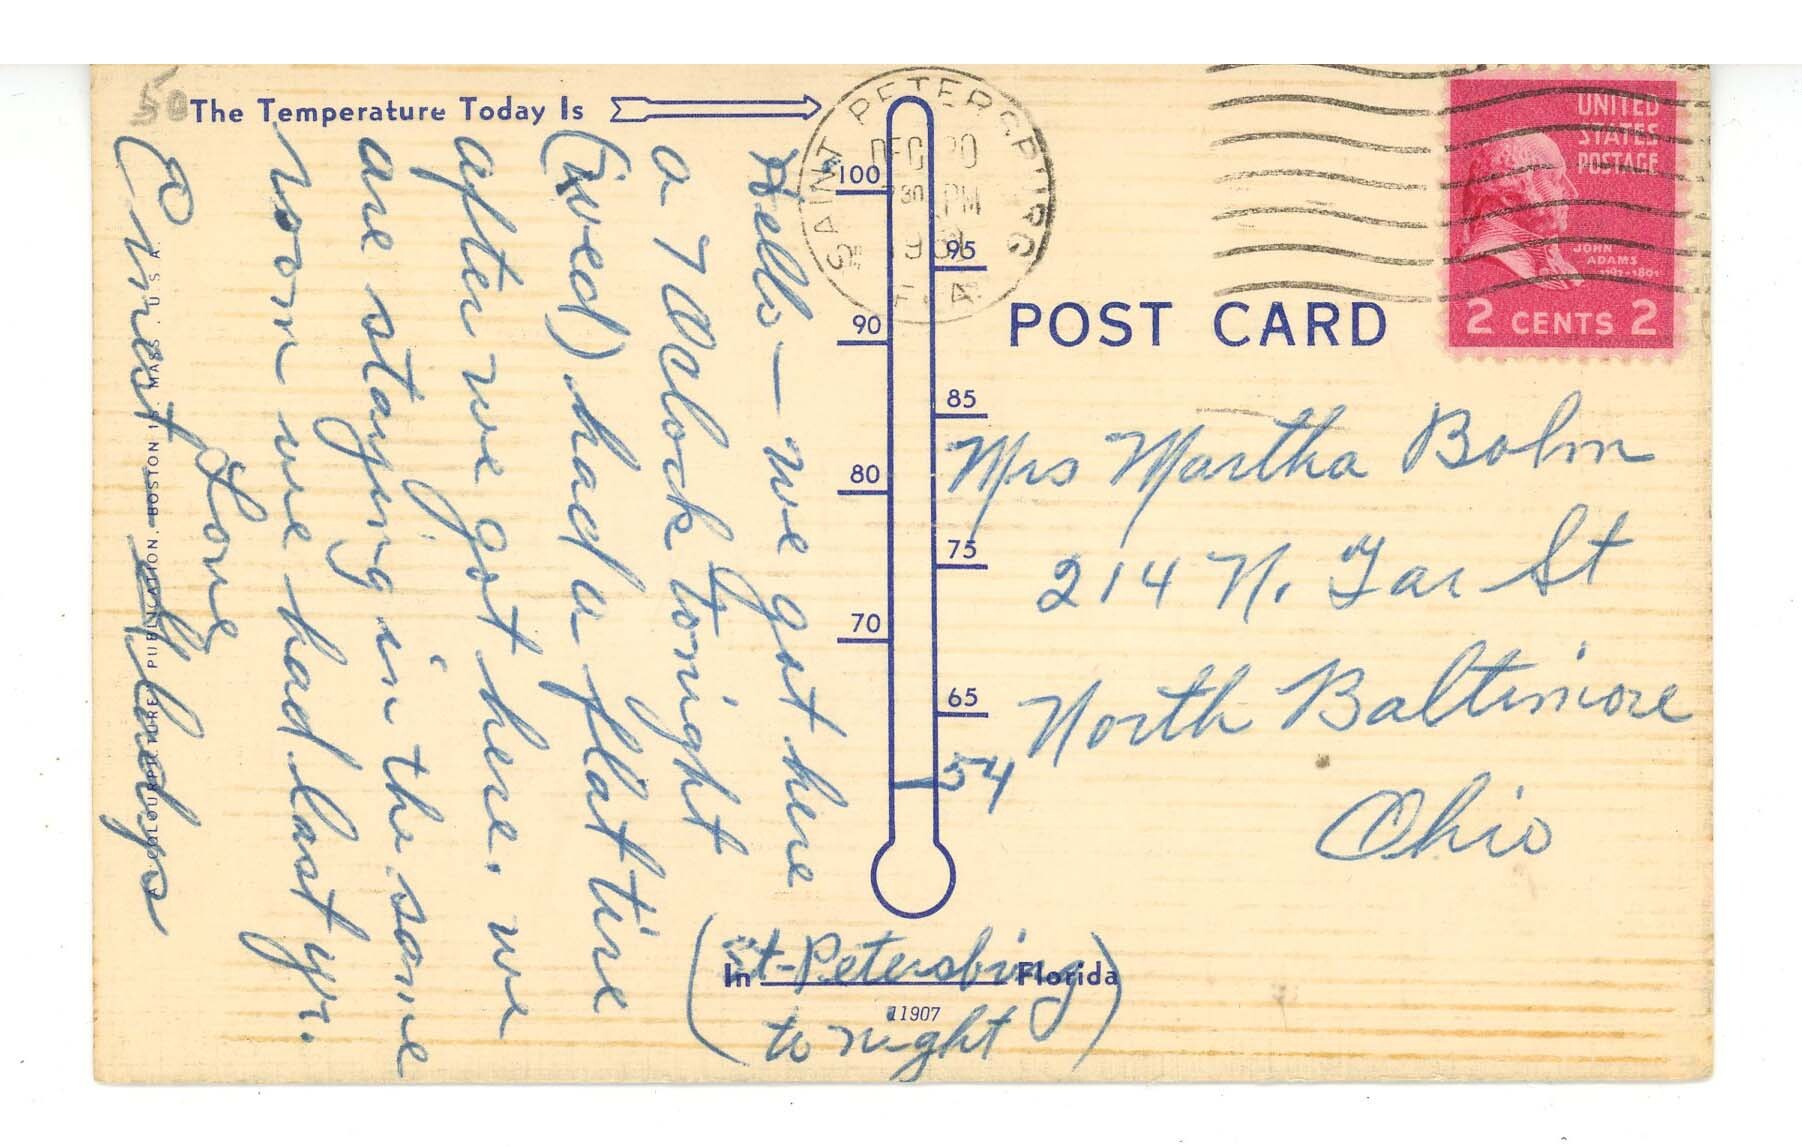 50
The Temperature Today Is
SAINT PETERSBURG
DEC 20
730 PM
FLA.
UNITED
STATES
POSTAGE
JOHN
ADAMS
1797-1801
2 CENTS 2
POST CARD
100
95
90
85
80
75
70
65
54
Hello — we got here
a 7 Oclock tonight
(wed) had a flat tire
after we got here. we
are staying in the same
room we had last yr.
Love
Ernest & Gladys
Mrs Martha Bohm
214 N. Tar St
North Baltimore
Ohio
In St-Petersburg Florida
(to night)
11907
A COLOURPICTURE PUBLICATION, BOSTON 15, MASS., U.S.A.